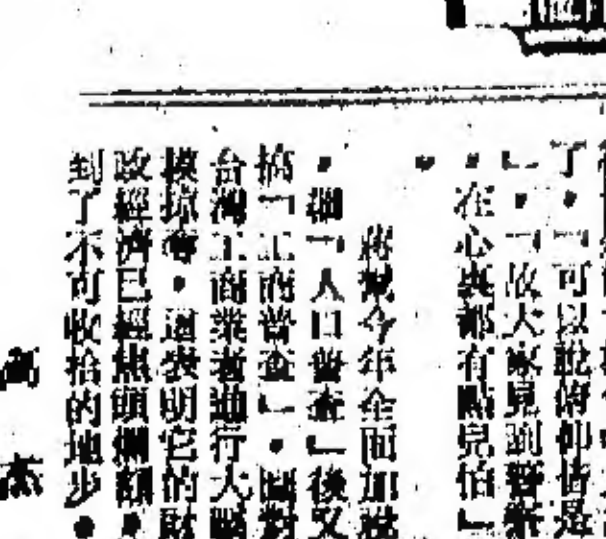 了。「可以說俯仰皆是
」。「故大家見到警察
。在心裏都有點兒怕」
。
蔣幫今年全面加稅
。繼「人口普查」後又
搞「工商普查」。圖對
台灣工商業者進行大
摸掠奪。這表明它的財
政經濟已經焦頭爛額。
到了不可收拾的地步。
高 杰